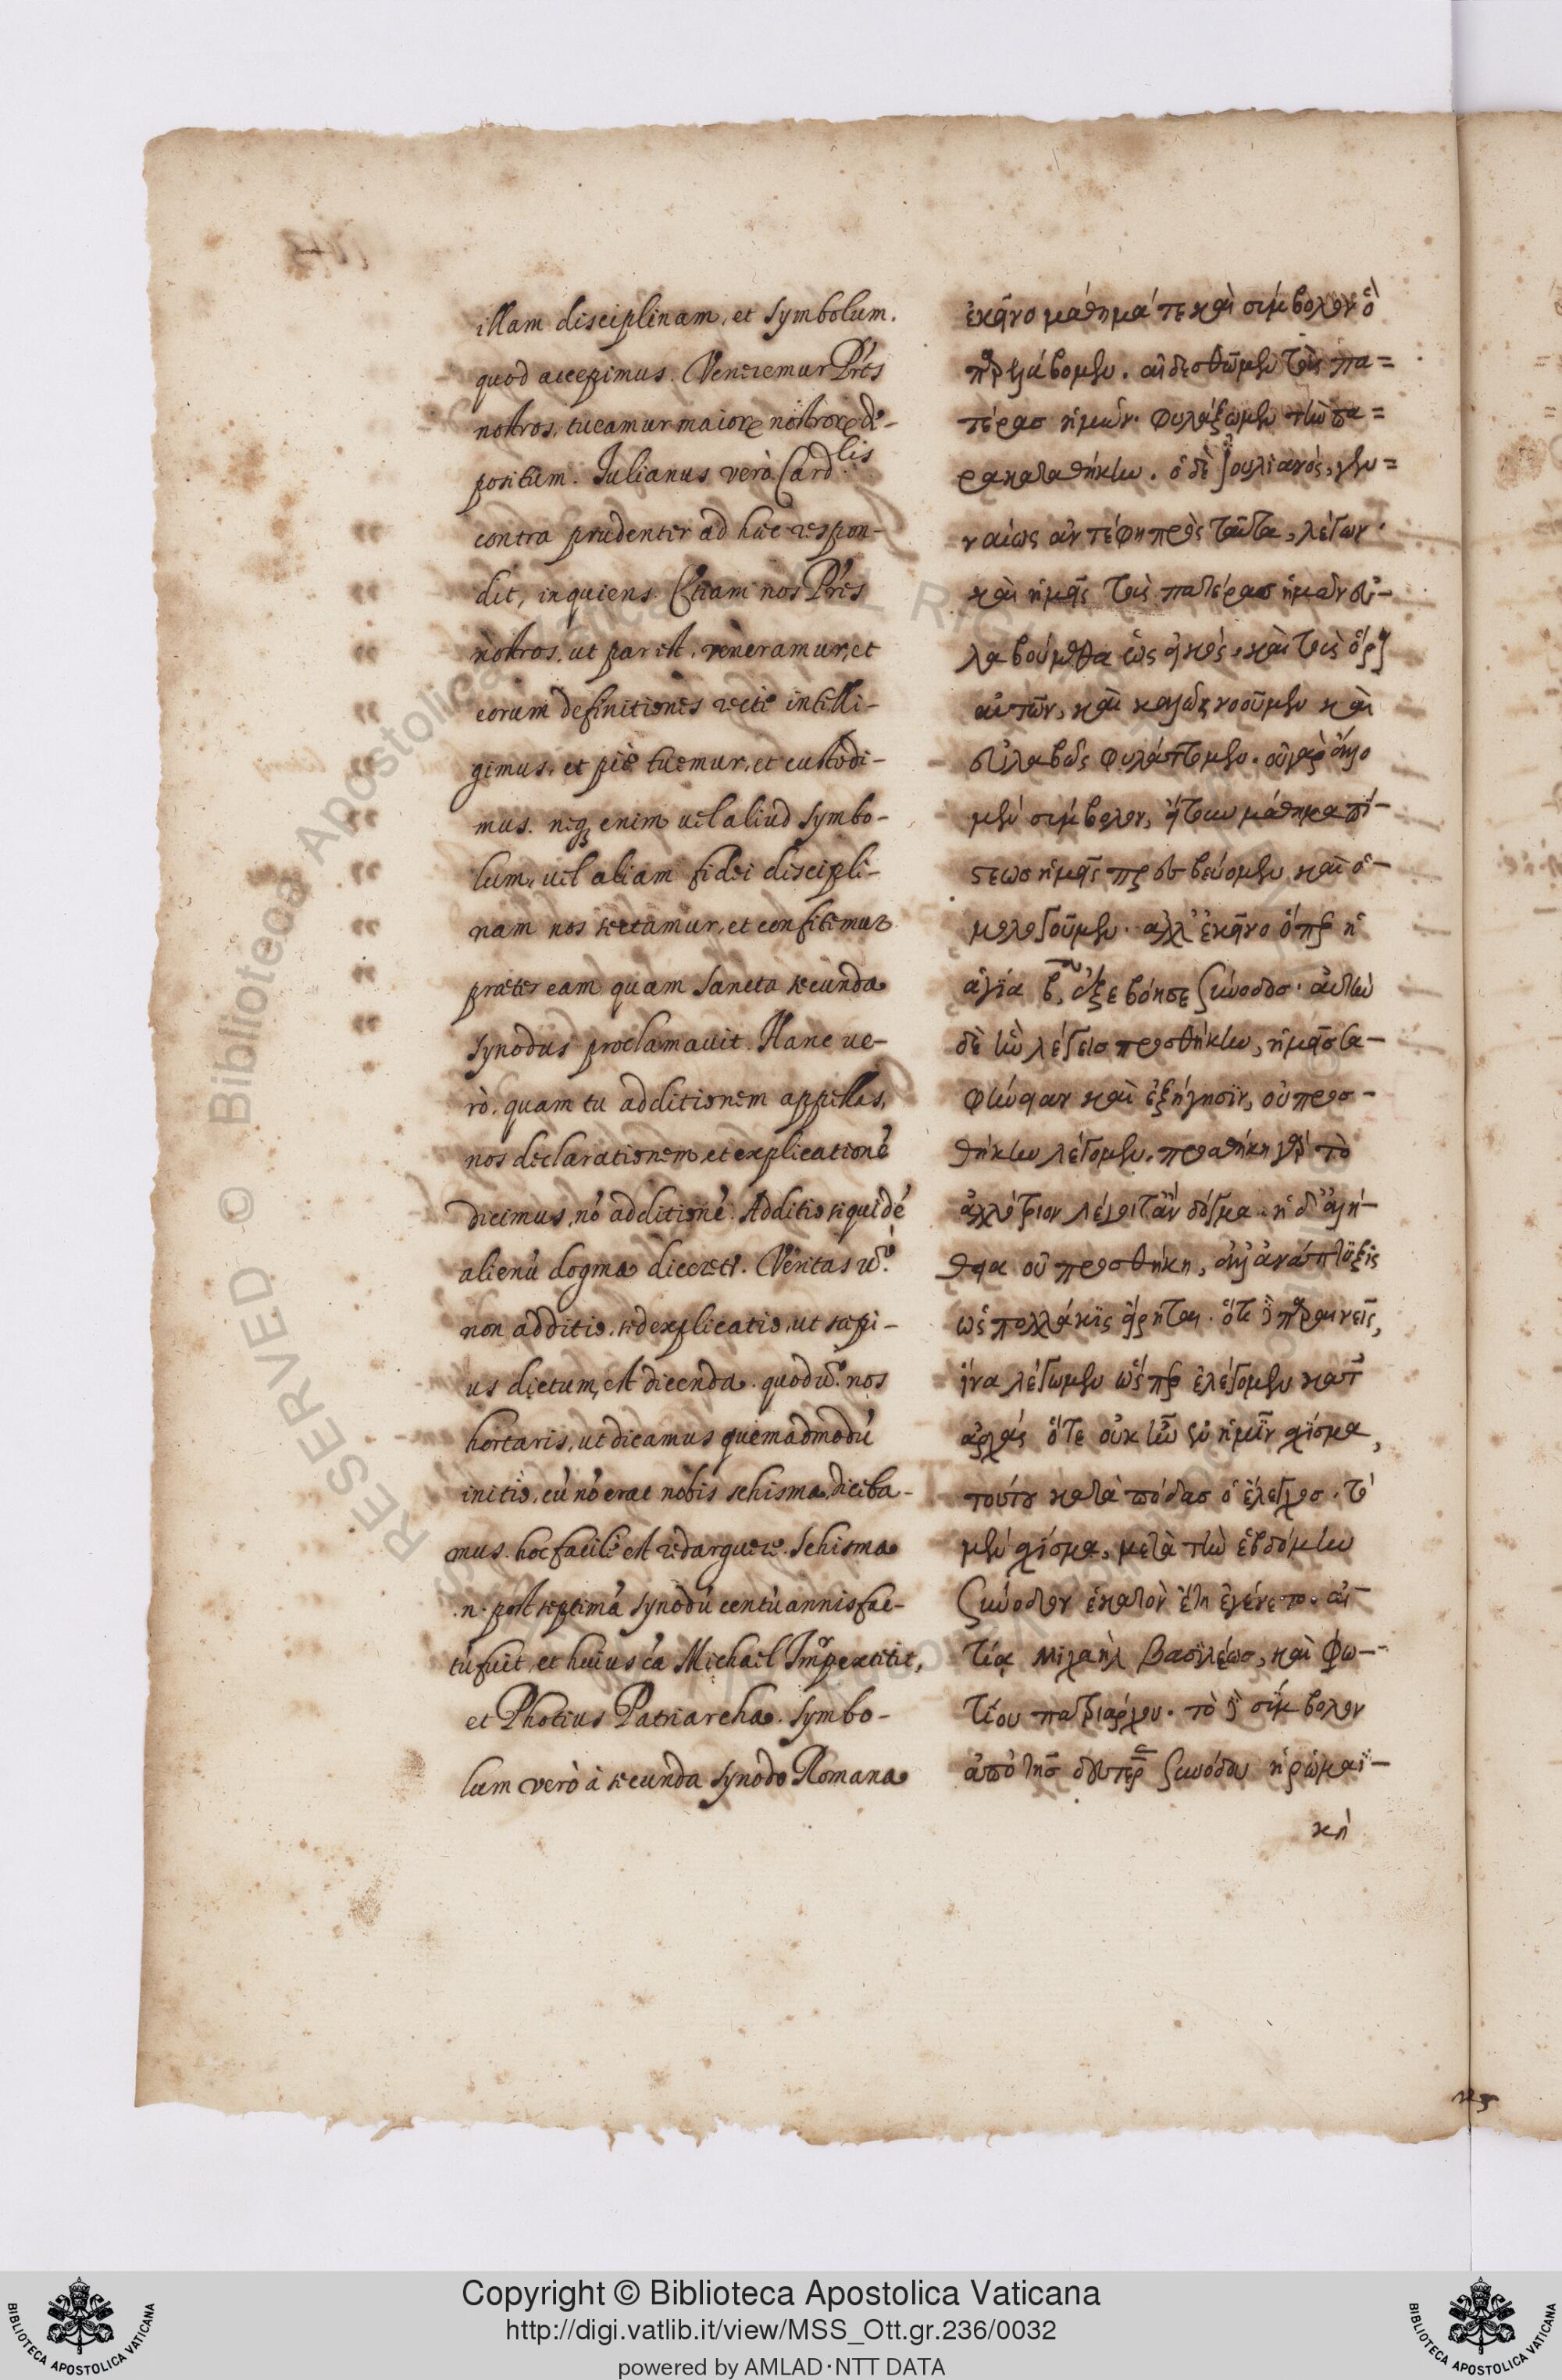 illam disciplinam, et Symbolum.
quod accepimus. Veneremur Pr̃es
nostros, tueamur maiorꝝ nostrorꝝ de-
positum. Julianus verò Card.lis
contra prudenter ad hæc respon-
dit, inquiens. Etiam nos Pr̃es
nostros, ut par est, veneramur, et
eorum definitiones recte intelli-
gimus, et piè tuemur, et custodi-
mus. neqꝫ enim vel aliud Symbo-
lum, vel aliam fidei discipli-
nam nos sectamur, et confitemur
præter eam quam Sancta secunda
Synodus proclamavit. Hanc ve-
rò, quam tu additionem appellas,
nos declarationem, et explicationẽ
dicimus, nõ additionẽ. Additio siquidẽ
alienũ dogma diceret. Veritas v̊.
non additio, sed explicatio, ut sæpi-
us dictum, est dicenda. quod v̊. nos
hortaris, ut dicamus quemadmodũ
initio, cũ nõ erat nobis schisma, diceba-
mus. hoc facile est redarguere. Schisma
.n. post septimã Synodũ centũ annis fac-
tũ fuit, et huius cã Michael Imp̃r extitit,
et Photius Patriarcha. Symbo-
lum verò à secunda Synodo Romana
ἐκεῖνο μάθημά τε καὶ σύμβολον ὃ
παρελάβομεν. αἰδεσθῶμεν τοὺς πα=
τέρας ἡμῶν. φυλάξωμεν τὴν πα=
ρακαταθήκην. ὁ δὲ Ἰουλιανός, γεν=
ναίως ἀντέφη πρὸς ταῦτα, λέγων.
καὶ ἡμεῖς τοὺς πατέρας ἡμῶν εὐ-
λαβούμεθα ὡς εἰκός, καὶ τοὺς ὅρους
αὐτῶν, καὶ καλῶς νοοῦμεν καὶ
εὐλαβῶς φυλάττομεν. οὐ γὰρ ἄλλο
μὲν σύμβολον, ἤτουν μάθημα πί-
στεως ἡμεῖς πρεσβεύομεν καὶ ὁ-
μολογοῦμεν. ἀλλ' ἐκεῖνο ὅπερ ἡ
ἁγία β, ἐξεβόησε ζύνοδος. αὐτὴν
δὲ ἣν λέγεις προσθήκην, ἡμεῖς σα-
φήνειαν καὶ ἐξήγησιν, οὐ προσ-
θήκην λέγομεν. προσθήκη γὰρ τὸ
ἀλλότριον λέγοιτ' ἂν δόγμα. ἡ δ' ἀλή-
θεια οὐ προσθήκη, ἀλλ' ἀνάπτυξις
ὡς πολλάκις εἴρηται. ὅτι δὲ παραινεῖς,
ἵνα λέγωμεν ὥσπερ ἐλέγομεν κατ'
ἀρχάς ὅτε οὐκ ἦν ἐν ἡμῖν σχίσμα,
τούτου κατὰ πόδας ὁ ἔλεγχος. τὸ
μὲν σχίσμα, μετὰ τὴν ἑβδόμην
ζύνοδον ἑκατὸν ἔτη ἐγένετο. αἰ-
τίᾳ Μιχαὴλ βασιλέως, καὶ Φω-
τίου πατριάρχου. τὸ δὲ σύμβολον
ἀπὸ τῆς δευτέρας ζυνόδου ἡ ῥωμαϊ-
κὴ
Copyright © Biblioteca Apostolica Vaticana
http://digi.vatlib.it/view/MSS_Ott.gr.236/0032
powered by AMLAD·NTT DATA
BIBLIOTECA APOSTOLICA VATICANA
BIBLIOTECA APOSTOLICA VATICANA